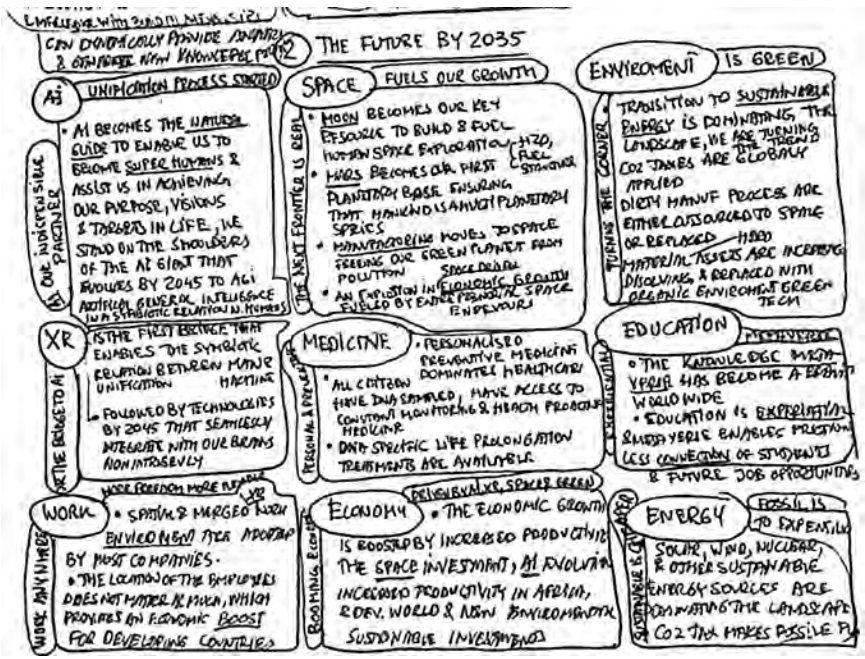 CAN DYNAMICALLY PROVIDE
& GENERATE NEW KNOWLEDGE
12 THE FUTURE BY 2035
Ai
UNIFICATION PROCESS STARTED
AI OUR INDISPENSIBLE PARTNER
• AI BECOMES THE NATURAL
GUIDE TO ENABLE US TO
BECOME SUPER HUMANS &
ASSIST US IN ACHIEVING
OUR PURPOSE, VISIONS
& TARGETS IN LIFE, WE
STAND ON THE SHOULDERS
OF THE AI GIANT THAT
EVOLVES BY 2045 TO AGi
ARTIFICIAL GENERAL INTELLIGENCE
IN A SYMBIOTIC RELATION W. HUMANS
SPACE
FUELS OUR GROWTH
THE NEXT FRONTIER IS REAL
• MOON BECOMES OUR KEY
RESOURCE TO BUILD & FUEL
HUMAN SPACE EXPLORATION - H2O,
FUEL
• MARS BECOMES OUR FIRST
PLANETARY BASE ENSURING
THAT MANKIND IS A MULTI PLANETARY
SPECIES
• MANUFACTORING MOVES TO SPACE
FREEING OUR GREEN PLANET FROM
POLUTION
SPACE DRIVEN
• AN EXPLOTION IN ECONOMIC GROWTH
FUELED BY ENTREPRENEURIAL SPACE
ENDEVOURS
ENVIROMENT
IS GREEN
TURNING THE CORNER
• TRANSITION TO SUSTAINABLE
ENERGY IS DOMINATING THE
LANDSCAPE, WE ARE TURNING
THE TREND
CO2 TAXES ARE GLOBALY
APPLIED
DIRTY MANUF PROCESS ARE
EITHER OUTSOURCED TO SPACE
OR REPLACED
HARD
MATERIAL ASSETS ARE
DISOLVING, & REPLACED WITH
ORGANIC ENVIROMENT GREEN
TECH
XR
XR THE BRIDGE TO Ai
IS THE FIRST BRIDGE THAT
ENABLES THE SYMBIOTIC
RELATION BETWEEN MAN &
UNIFICATION MACHINE
• FOLLOWED BY TECHNOLOGIES
BY 2045 THAT SEAMLESSLY
INTEGRATE WITH OUR BRAINS
NON INTRUSIVLY
MEDICINE
PERSONAL &
• PERSONALISED
PREVENTIVE MEDICINE
DOMINATES HEALTHCARE
• ALL CITIZEN
HAVE DNA SAMPLED, HAVE ACCESS TO
CONSTANT MONITORING & HEALTH
MEDICINE
• DNA SPECIFIC LIFE PROLONGATION
TREATMENTS ARE AVAILABLE
EDUCATION
METAVERSE
EXPERIENTIAL
• THE KNOWLEDGE META
VERSE HAS BECOME A
WORLD WIDE
• EDUCATION IS EXPERIENTIAL
& METAVERSE ENABLES FRICTION
LESS CONNECTION OF STUDENTS
& FUTURE JOB OPPORTUNITIES
WORK
MORE FREEDOM MORE FLEXIBLE
WORK ANYWHERE
XR
• SPATIAL & MERGED WORK
ENVIROMENT ARE ADOPTED
BY MOST COMPANIES.
• THE LOCATION OF THE EMPLOYEES
DOES NOT MATTER AS MUCH, WHICH
PROVIDES AN ECONOMIC BOOST
FOR DEVELOPING COUNTRIES
ECONOMY
DRIVEN BY AI, XR, SPACE & GREEN
BOOMING ECONOMY
• THE ECONOMIC GROWTH
IS BOOSTED BY INCREASED PRODUCTIVITY
THE SPACE INVESTMENT, AI EVOLUTION
INCREASED PRODUCTIVITY IN AFRICA,
& DEV. WORLD & NEW ENVIROMENTAL
SUSTAINABLE INVESTMENTS
ENERGY
FOSSIL IS
TO EXPENSIVE
SUSTAINABLE & CHEAPER
SOLAR, WIND, NUCLEAR,
& OTHER SUSTAINABLE
ENERGY SOURCES ARE
DOMINATING THE LANDSCAPE
CO2 TAX MAKES FOSSILE